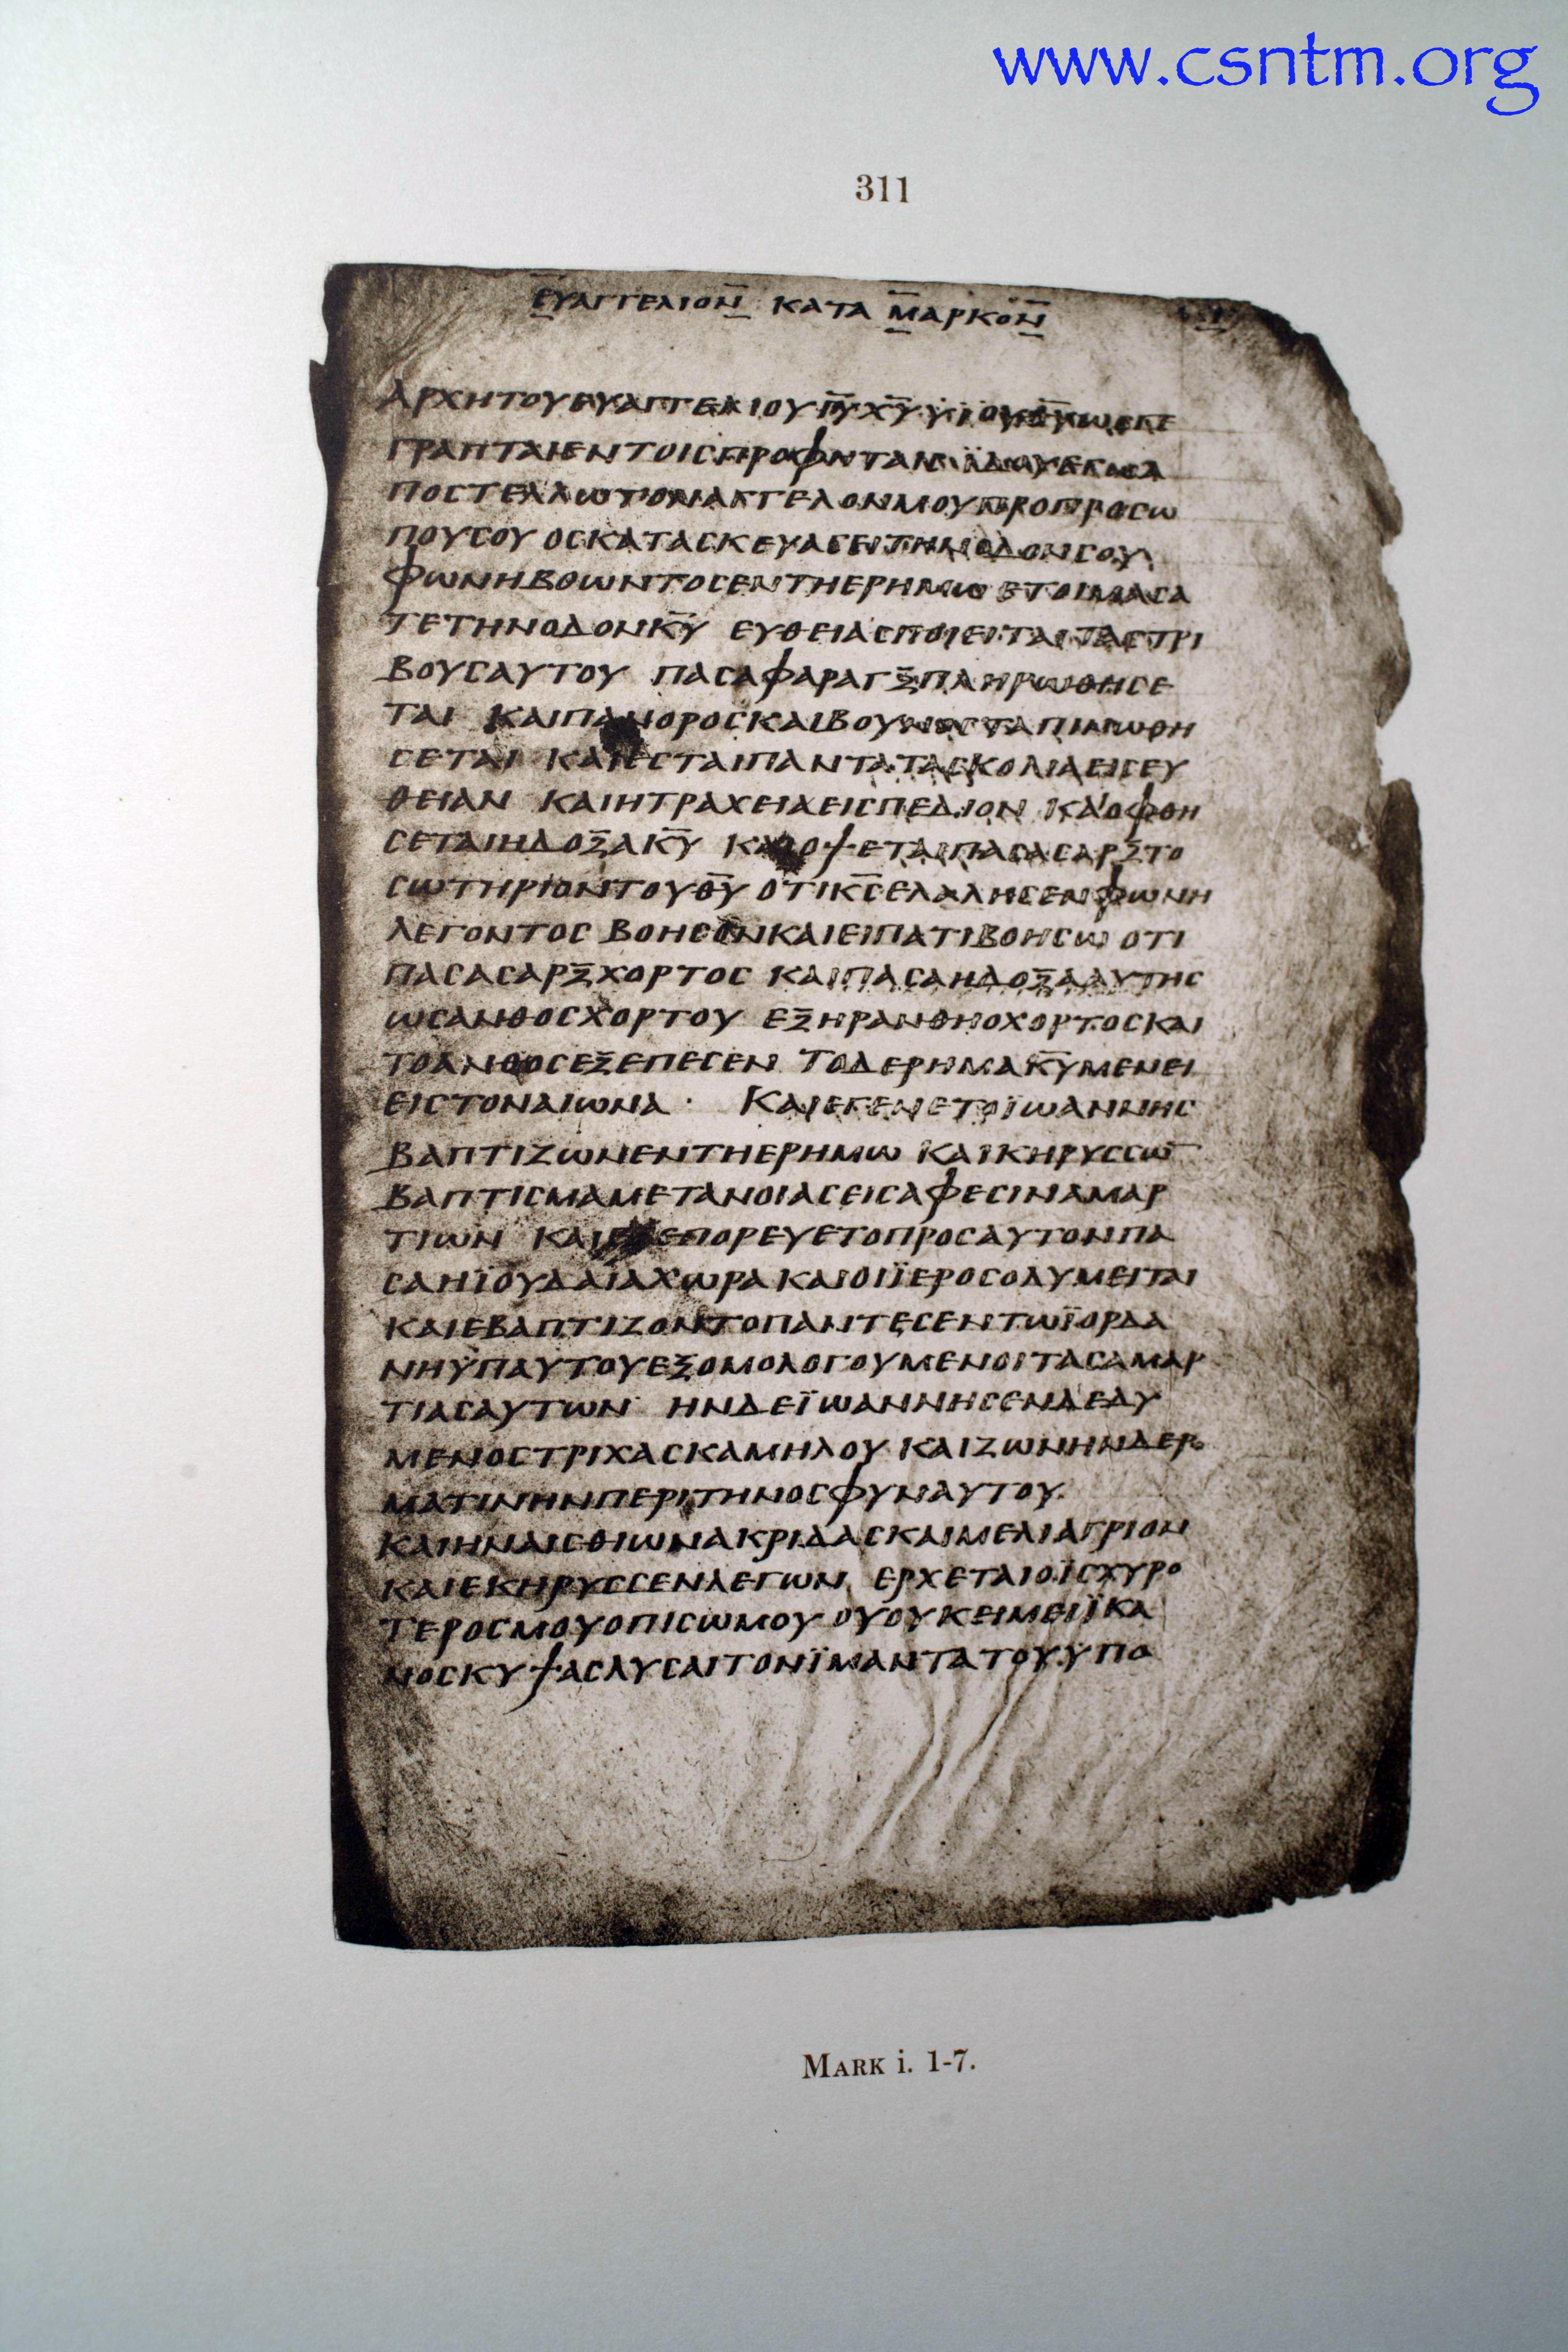 www.csntm.org
311
ΕΥΑΓΓΕΛΙΟΝ ΚΑΤΑ ΜΑΡΚΟΝ
ΑΡΧΗΤΟΥΕΥΑΓΓΕΛΙΟΥΙ̅Υ̅Χ̅Υ̅ΫΙΟΥΘ̅Υ̅ΚΩϹΓΕ
ΓΡΑΠΤΑΙΕΝΤΟΙϹΠΡΟΦΗΤΑΙϹΪΔΟΥΕΓΩΑ
ΠΟϹΤΕΛΛΩΤΟΝΑΓΓΕΛΟΝΜΟΥΠΡΟΠΡΟϹΩ
ΠΟΥϹΟΥ ΟϹΚΑΤΑϹΚΕΥΑϹΕΙΤΗΝΟΔΟΝϹΟΥ
ΦΩΝΗΒΟΩΝΤΟϹΕΝΤΗΕΡΗΜΩ ΕΤΟΙΜΑϹΑ
ΤΕΤΗΝΟΔΟΝΚ̅Υ̅ ΕΥΘΕΙΑϹΠΟΙΕΙΤΑΙΤΑϹΤΡΙ
ΒΟΥϹΑΥΤΟΥ ΠΑϹΑΦΑΡΑΓΞΠΛΗΡΩΘΗϹΕ
ΤΑΙ ΚΑΙΠΑΝΟΡΟϹΚΑΙΒΟΥΝΟϹΤΑΠΙΝΩΘΗ
ϹΕΤΑΙ ΚΑΙΕϹΤΑΙΠΑΝΤΑΤΑϹΚΟΛΙΑΕΙϹΕΥ
ΘΕΙΑΝ ΚΑΙΗΤΡΑΧΕΙΑΕΙϹΠΕΔΙΟΝ ΚΑΙΟΦΘΗ
ϹΕΤΑΙΗΔΟΞΑΚ̅Υ̅ ΚΑΙΟΨΕΤΑΙΠΑϹΑϹΑΡΞΤΟ
ϹΩΤΗΡΙΟΝΤΟΥΘ̅Υ̅ ΟΤΙΚ̅Ϲ̅ΕΛΑΛΗϹΕΝΦΩΝΗ
ΛΕΓΟΝΤΟϹ ΒΟΗϹΟΝΚΑΙΕΙΠΑΤΙΒΟΗϹΩ ΟΤΙ
ΠΑϹΑϹΑΡΞΧΟΡΤΟϹ ΚΑΙΠΑϹΑΗΔΟΞΑΑΥΤΗϹ
ΩϹΑΝΘΟϹΧΟΡΤΟΥ ΕΞΗΡΑΝΘΗΟΧΟΡΤΟϹΚΑΙ
ΤΟΑΝΘΟϹΕΞΕΠΕϹΕΝ ΤΟΔΕΡΗΜΑΚ̅Υ̅ΜΕΝΕΙ
ΕΙϹΤΟΝΑΙΩΝΑ · ΚΑΙΕΓΕΝΕΤΟΪΩΑΝΝΗϹ
ΒΑΠΤΙΖΩΝΕΝΤΗΕΡΗΜΩ ΚΑΙΚΗΡΥϹϹΩ̅
ΒΑΠΤΙϹΜΑΜΕΤΑΝΟΙΑϹΕΙϹΑΦΕϹΙΝΑΜΑΡ
ΤΙΩΝ ΚΑΙΕΞΕΠΟΡΕΥΕΤΟΠΡΟϹΑΥΤΟΝΠΑ
ϹΑΗΪΟΥΔΑΙΑΧΩΡΑΚΑΙΟΙΪΕΡΟϹΟΛΥΜΕΙΤΑΙ
ΚΑΙΕΒΑΠΤΙΖΟΝΤΟΠΑΝΤΕϹΕΝΤΩΪΟΡΔΑ
ΝΗΫΠΑΥΤΟΥΕΞΟΜΟΛΟΓΟΥΜΕΝΟΙΤΑϹΑΜΑΡ
ΤΙΑϹΑΥΤΩΝ ΗΝΔΕΪΩΑΝΝΗϹΕΝΔΕΔΥ
ΜΕΝΟϹΤΡΙΧΑϹΚΑΜΗΛΟΥ ΚΑΙΖΩΝΗΝΔΕΡ
ΜΑΤΙΝΗΝΠΕΡΙΤΗΝΟϹΦΥΝΑΥΤΟΥ
ΚΑΙΗΝΑΙϹΘΙΩΝΑΚΡΙΔΑϹΚΑΙΜΕΛΙΑΓΡΙΟΝ
ΚΑΙΕΚΗΡΥϹϹΕΝΛΕΓΩΝ ΕΡΧΕΤΑΙΟΪϹΧΥΡΟ
ΤΕΡΟϹΜΟΥΟΠΙϹΩΜΟΥ ΟΥΟΥΚΕΙΜΕΙΪΚΑ
ΝΟϹΚΥΨΑϹΛΥϹΑΙΤΟΝΪΜΑΝΤΑΤΟΥΫΠΟ
MARK i. 1-7.